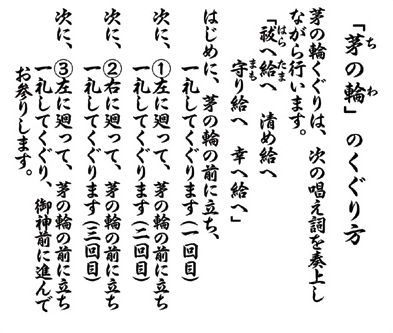 「茅の輪」のくぐり方
茅の輪くぐりは、次の唱え詞を奏上し
ながら行います。
「祓へ給へ　清め給へ
守り給へ　幸へ給へ」
はじめに、茅の輪の前に立ち、
一礼してくぐります(一回目)
次に、①左に廻って、茅の輪の前に立ち
一礼してくぐります(二回目)
次に、②右に廻って、茅の輪の前に立ち
一礼してくぐります(三回目)
次に、③左に廻って、茅の輪の前に立ち
一礼してくぐり、御神前に進んで
お参りします。